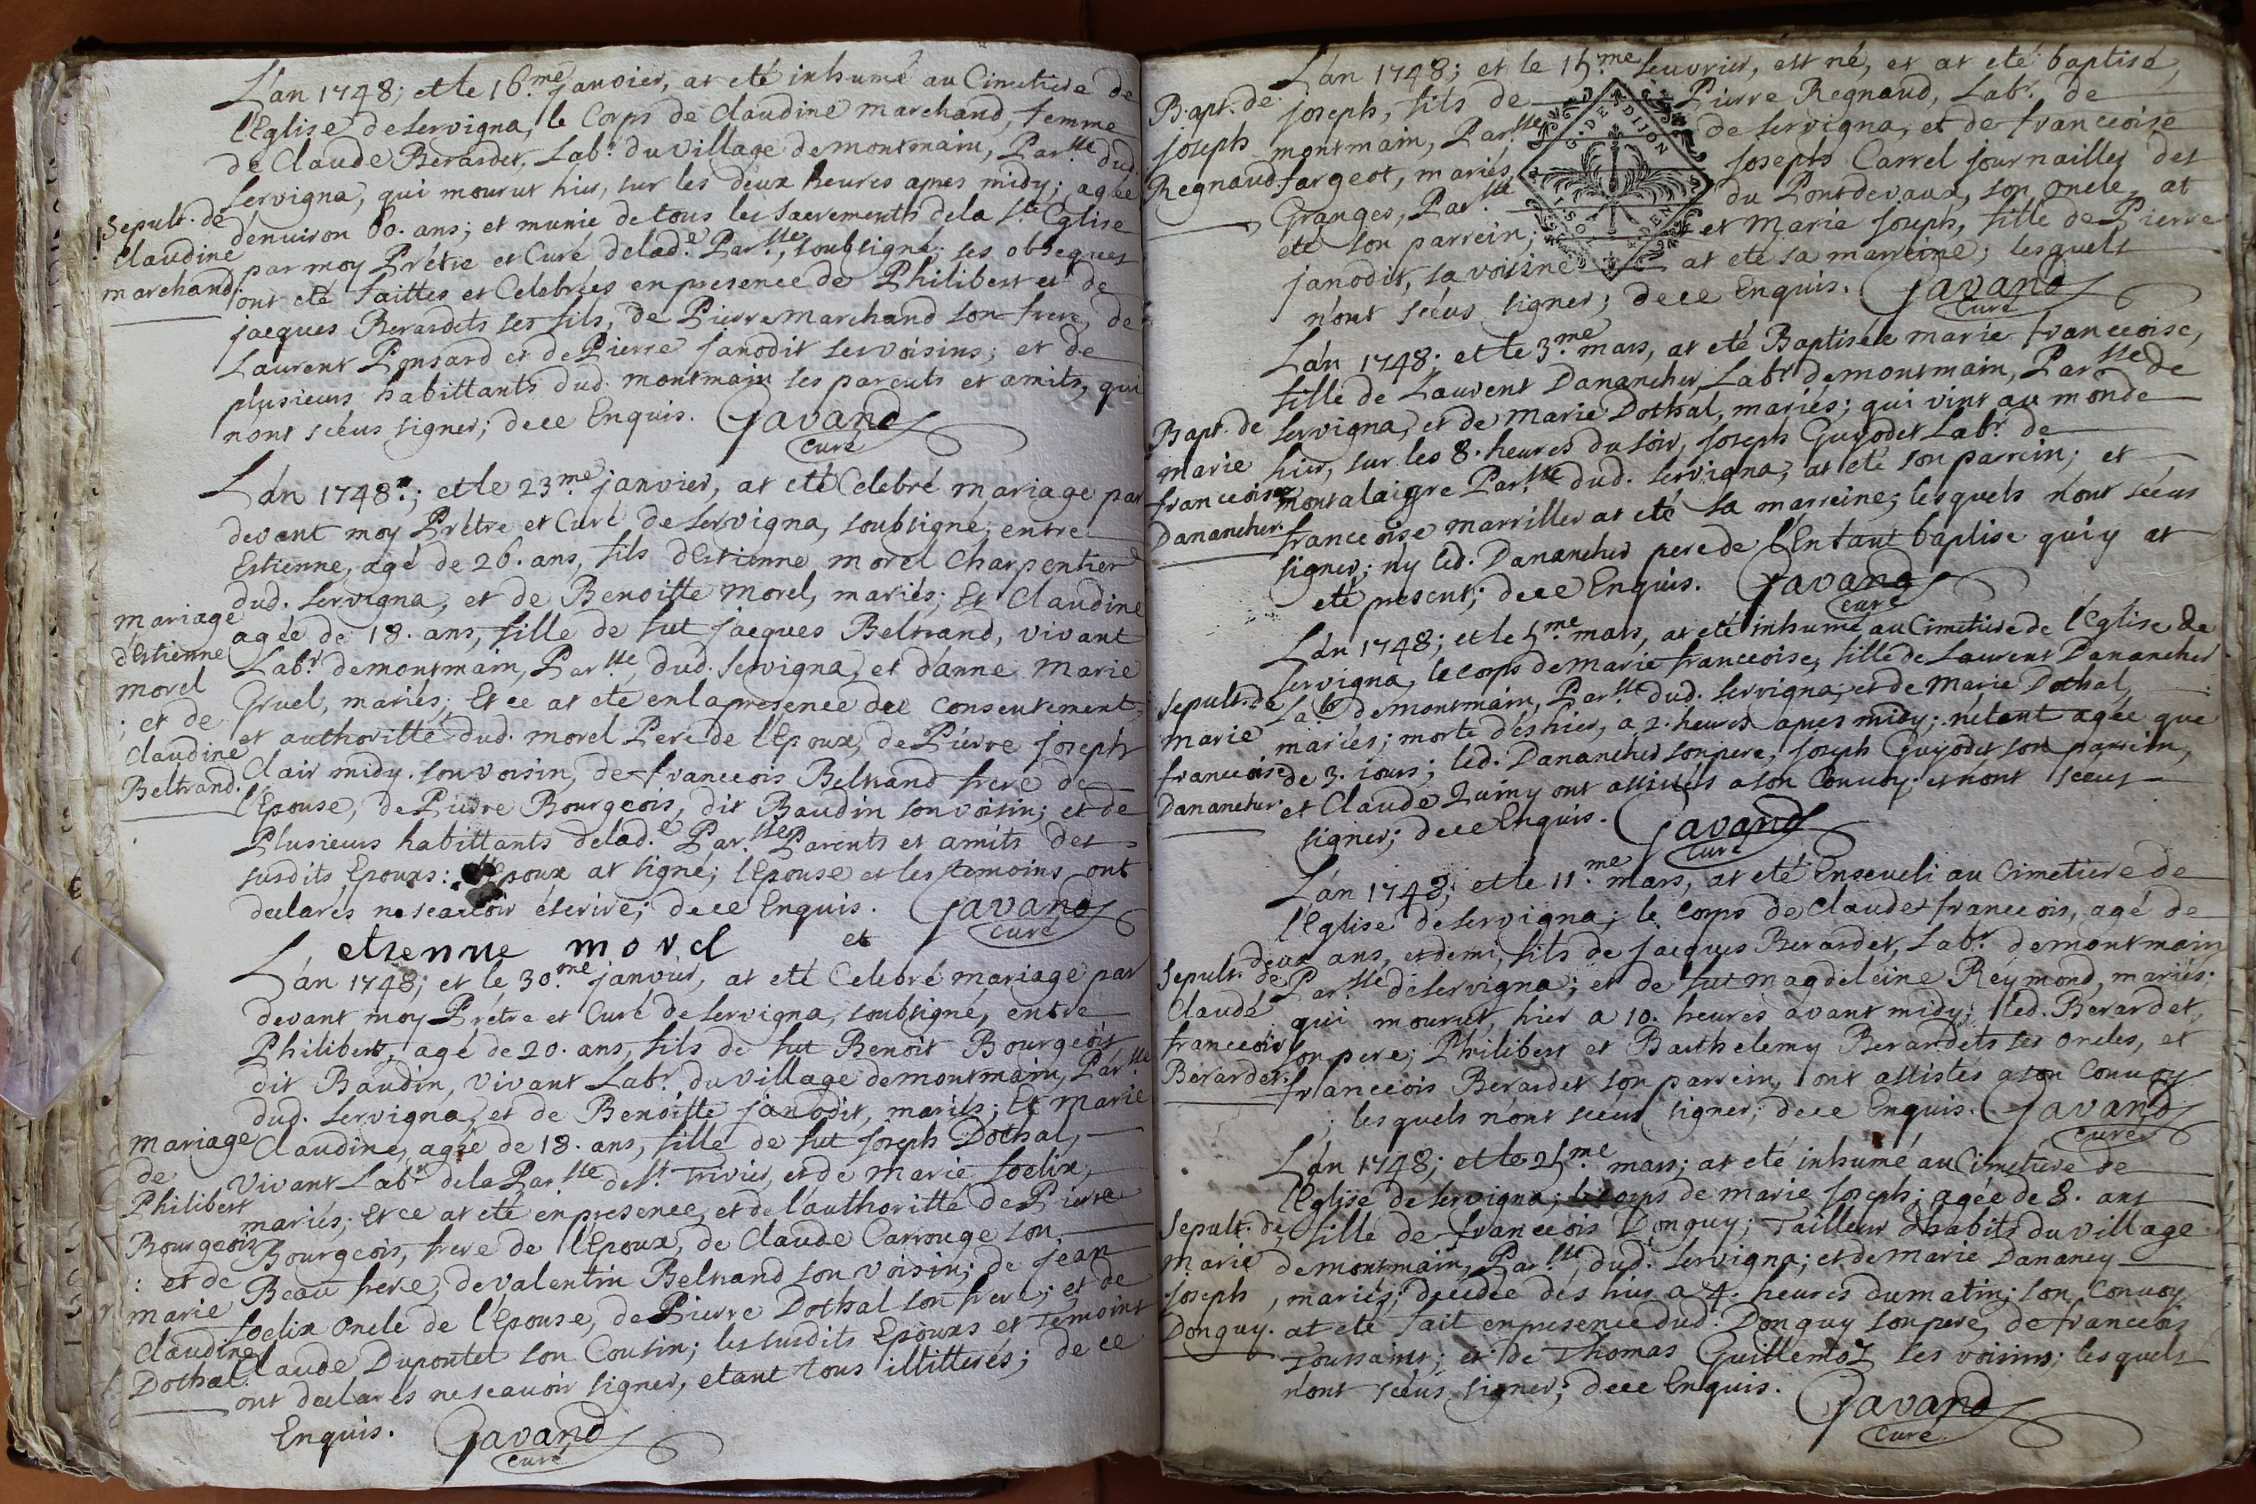 L'an 1748; et le 16.me janvier, at eté inhumé au Cimetiere de
l'Eglise de Servigna, le Corps de Claudine Marchand, femme
de Claude Berardet, Labr. du village de montmain, Parsse. dud.
Servigna, qui mourut hier, sur les deux heures apres midy; agée
Sepult. de
Claudine
marchand.
d'enuiron 60. ans; et munie de tous les Sacrements de la Ste. Eglise
par moy Prétre et Curé de lad.e Parsse., soubsigné; ses obseques
ont eté faittes et Celebrées en presence de Philibert et de
jacques Berardets ses fils, de Pierre marchand son frere, de
Laurent Ponsard et de Pierre janodit ses voisins; et de
plusieurs habittants dud. montmain ses parents et amits, qui
n'ont scéus signer; de ce Enquis. Gavand
curé
L'an 1748.; et le 23.me janvier, at eté Celebré mariage par
devant moy Prétre et Curé de Servigna, soubsigné; entre
Estienne, agé de 26. ans, fils d'Estienne morel Charpentier
dud. Servigna, et de Benoitte Morel, mariés; Et Claudine
mariage
d'Estienne
morel
; et de
Claudine
Beltrand.
agée de 18. ans, fille de fut jacques Beltrand, vivant
Labr. de montmain, Parsse. dud. Servigna, et d'anne Marie
Gruel, mariés; Et ce at eté en la presence du consentement,
et authoritté dud. morel Pere de l'Epoux, de Pierre joseph
Clair midy son voisin, de franceois Beltrand frere de
l'Epouse, de Pierre Bourgeois, dit Baudin son voisin; et de
Plusieurs habittants de lad.e Parsse. Parents et amits des
susdits Epouxs: l'Epoux at signé; l'Epouse et les témoins ont
declarés ne scauoir éscrire; de ce Enquis. Gavand
curé
etienne morel et
L'an 1748; et le 30.me janvier, at eté Celebré mariage par
devant moy Prétre et Curé de Servigna, soubsigné, entre
Philibert, agé de 20. ans, fils de fut Benoit Bourgeois
dit Baudin, vivant Labr. du village de montmain, Parsse.
dud. Servigna, et de Benoitte janodit, mariés; Et Marie
mariage
de
Philibert
Bourgeois
: et de
marie
Claudine
Dothal.
Claudine, agée de 18. ans, fille de fut joseph Dothal,
vivant Labr. de la Parsse. de St. Trivier, et de Marie Soelix,
mariés; Et ce at eté en presence, et de l'authoritté de Pierre
Bourgeois, frere de l'Epoux, de Claude Carrouge son
Beau frere, de valentin Beltrand son voisin; de jean
Soelix oncle de l'Epouse, de Pierre Dothal son frere; et de
Claude Dupontet son Cousin; les susdits Epouxs et Temoins
ont declarés ne scauoir signer, etant tous illitterés; de ce
Enquis. Gavand
curé
L'an 1748; et le 15.me feuvrier, ést né, et at eté baptisé,
Bapt. de
joseph
Regnaud
joseph, fils de Pierre Regnaud, Labr. de
montmain, Parsse. de Servigna, et de franceoise
fargeot, mariés, joseph Carrel journaillier des
Granges, Parsse. du Pontdevaux, son oncle, at
eté son parrein; et Marie joseph, fille de Pierre
janodit, sa voisine at eté sa marreine; lesquels
n'ont scéus signer; de ce Enquis. Gavand
curé
G. DE DIJON
L'an 1748. et le 3.me mars, at eté Baptisée marie francoise,
fille de Laurent Danancher, Labr. de montmain, Parsse. de
Bapt. de
marie
francoise
Danancher.
Servigna, et de Marie Dothal, mariés; qui vint au monde
hier, sur les 8. heures du soir, joseph Guyodet Labr. de
montalaigre Parsse. dud. Servigna, at eté son parrein; et
francoise marriller at eté sa marreine; lesquels n'ont scéus
signer; ny led. Danancher pere de l'Enfant baptise qui y at
eté present; de ce Enquis. Gavand
curé
L'an 1748; et le 5.me mars, at eté inhumé au Cimetiere de l'Eglise de
Servigna, le corps de Marie francoise, fille de Laurent Danancher
Sepult. de
Marie
francoise
Danancher.
Labr. de montmain, Parsse. dud. Servigna, et de Marie Dothal,
mariés; morte dés hier, a 2. heures apres midy; n'etant agée que
de 3. iours; led. Danancher son pere, joseph Guyodet son parrein,
et Claude Quiny ont assistés a son Convoy; et n'ont scéus
signer; de ce Enquis. Gavand
curé
L'an 1748; et le 11.me mars, at eté Enseveli au Cimetiere de
l'Eglise de Servigna; le Corps de Claude francois, agé de
Sepult. de
Claude
francois
Berardet.
deux ans, et demi, fils de jacques Berardet, Labr. de montmain
Parsse. de Servigna; et de fut Magdeleine Reymond, mariés;
qui mourut, hier a 10. heures avant midy; led. Berardet,
son pere; Philibert et Barthelemy Berardets ses oncles, et
francois Berardet son parrein, ont assistés a son Convoy
; lesquels n'ont scéus signer; de ce Enquis. Gavand
curé
L'an 1748; et le 25.me mars; at eté inhumé au Cimetiere de
l'Eglise de Servigna; le corps de marie joseph; agée de 8. ans
Sepult. de
Marie
joseph
Donguy.
fille de francois Donguy; Tailleur d'habits du village
de montmain, Parsse. dud. Servigna; et de Marie Danancy
, mariés; decedée dés hier a 4. heures du matin; son Convoy
at eté fait en presence dud. Donguy son pere, de francois
Toussaint; et de Thomas Guillemot ses voisins; lesquels
n'ont scéus signer; de ce Enquis. Gavand
curé